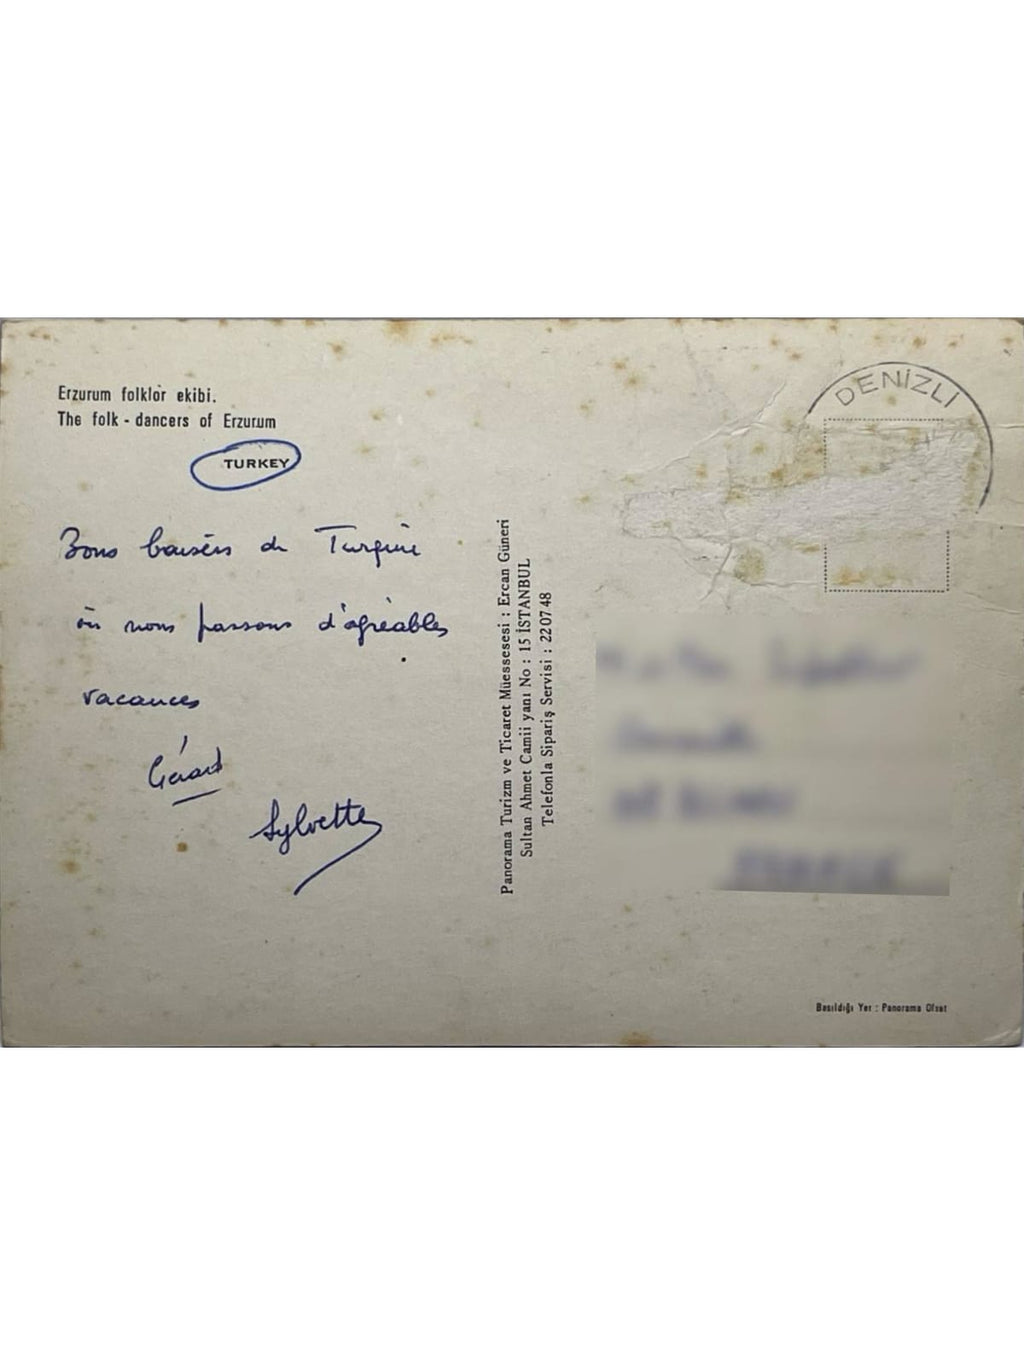 Erzurum folklor ekibi.
The folk - dancers of Erzurum
TURKEY
Bons baisers de Turquie
où nous passons d'agréables
vacances
Gérard
Sylvette
Panorama Turizm ve Ticaret Müessesesi : Ercan Güneri
Sultan Ahmet Camii yanı No : 15 İSTANBUL
Telefonla Sipariş Servisi : 22 07 48
DENİZLİ
Basıldığı Yer : Panorama Ofset